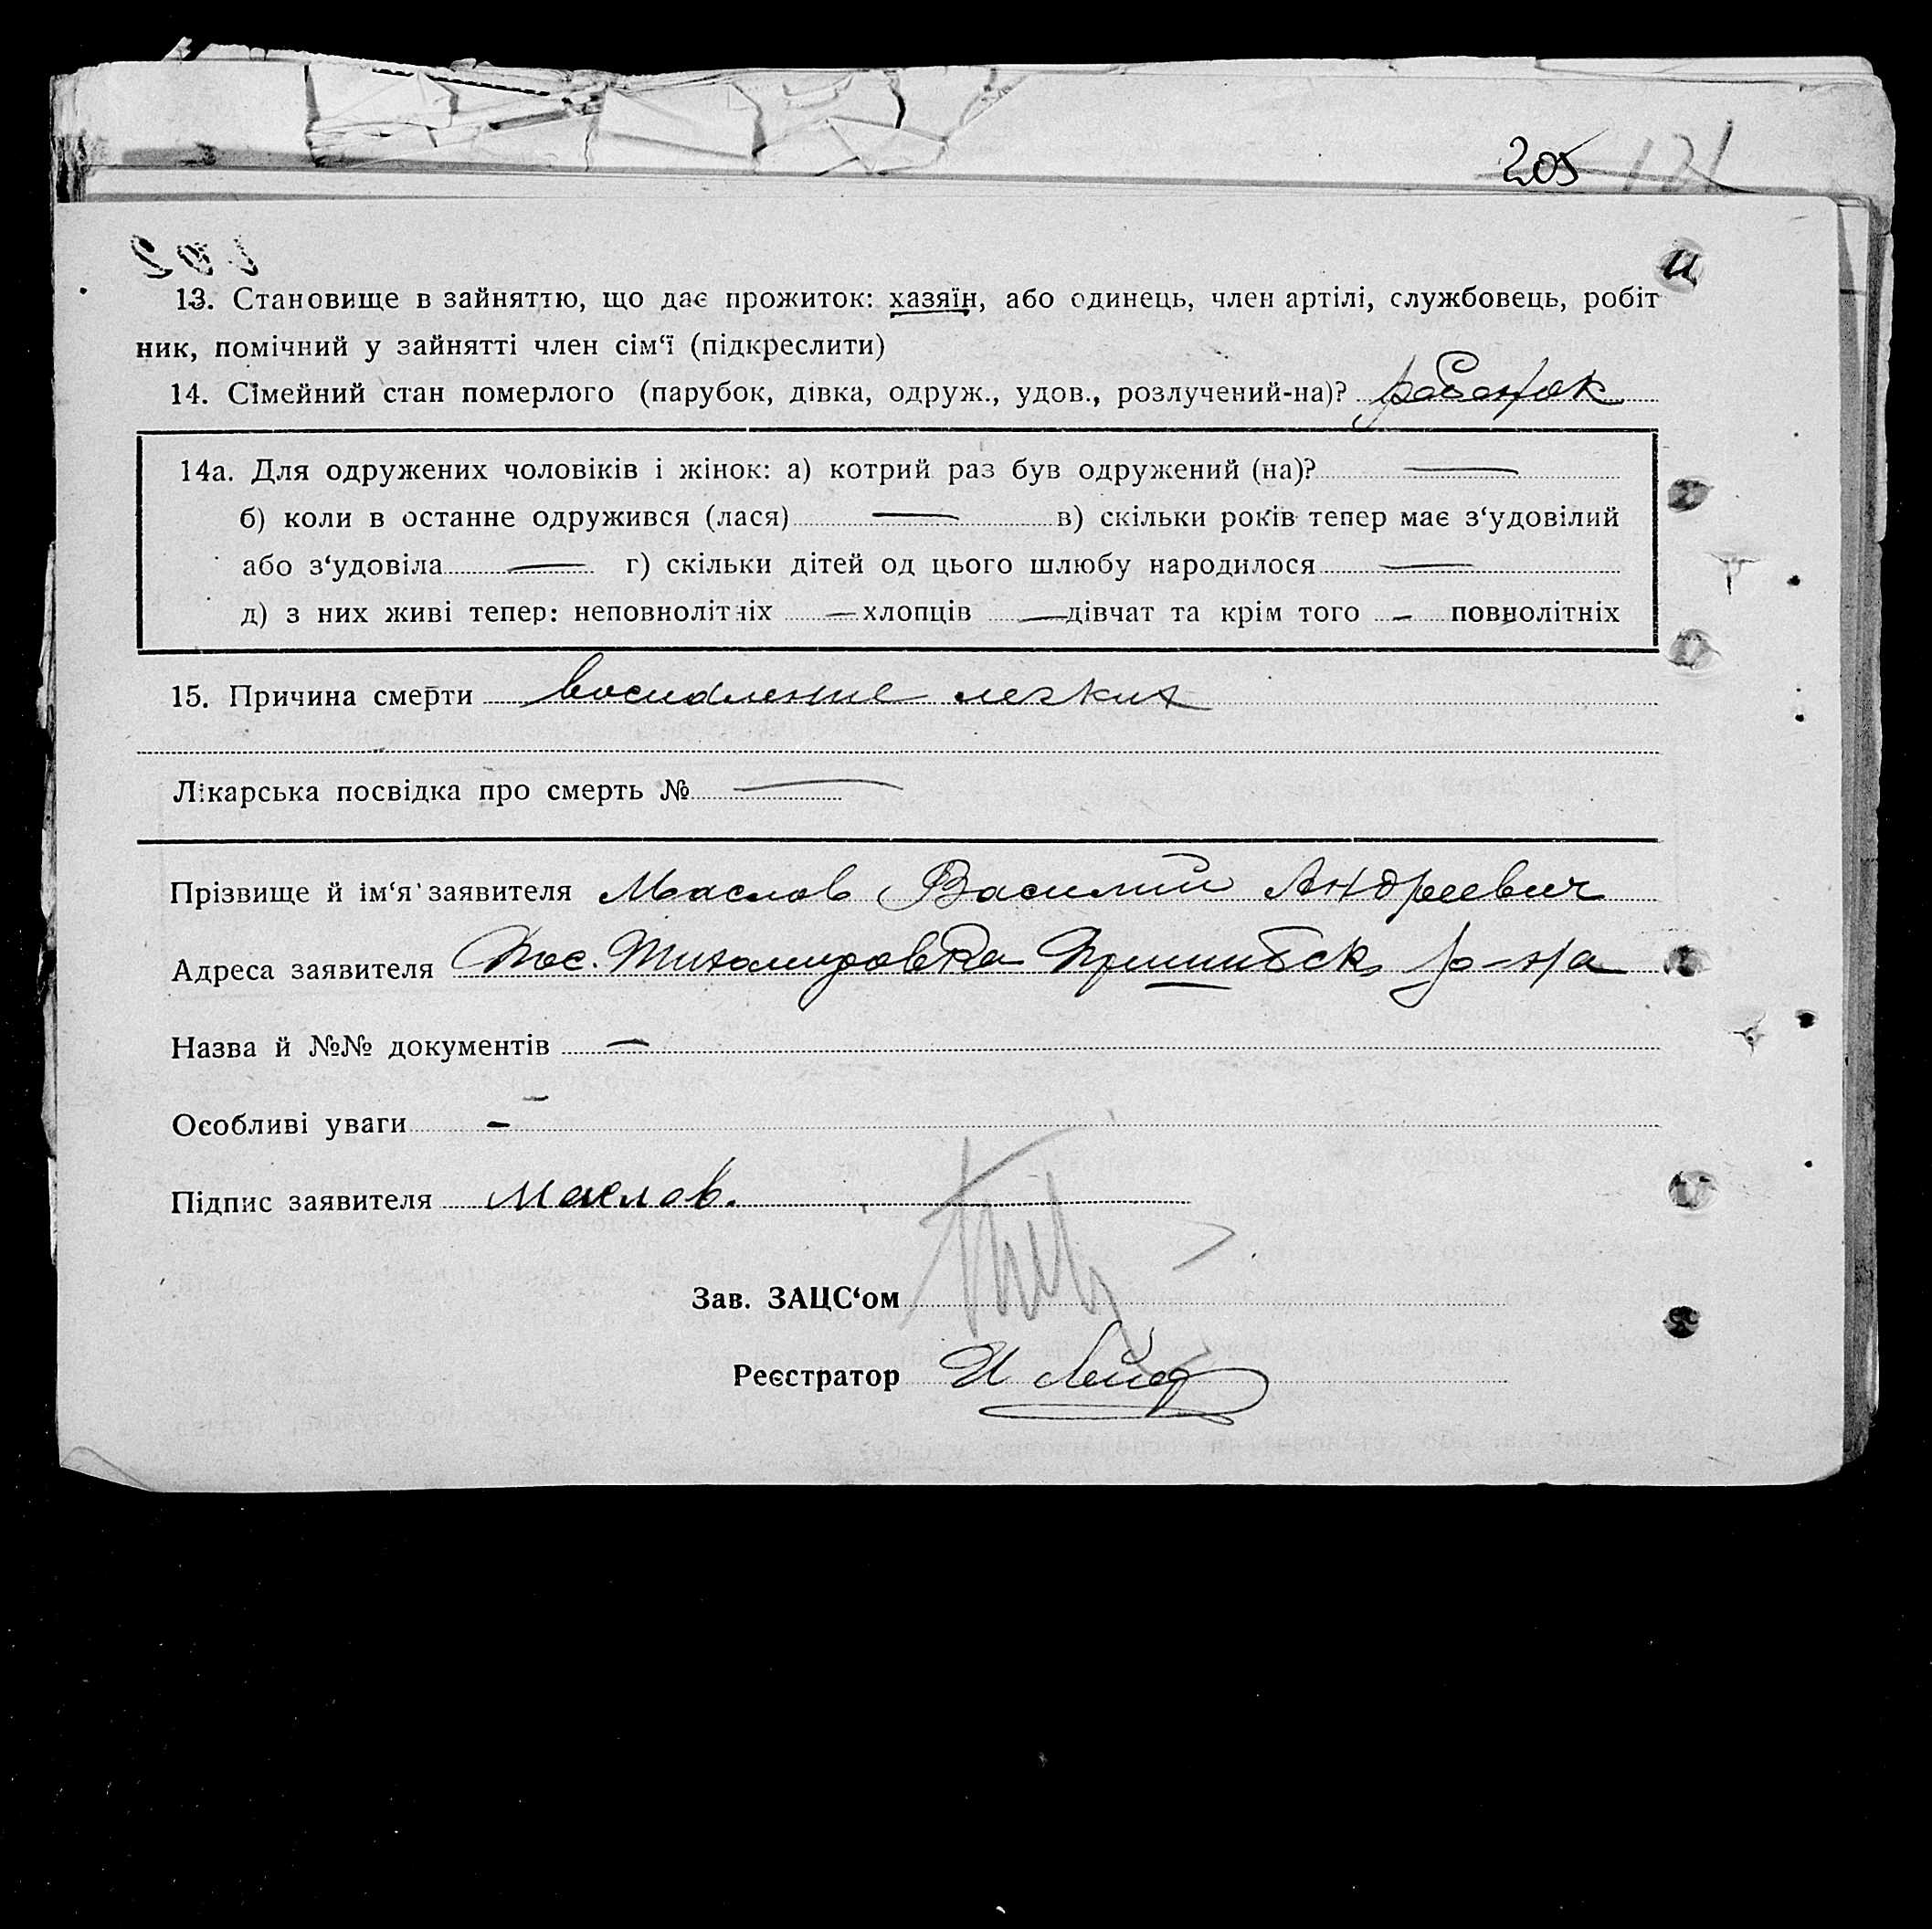 205 121
13. Становище в зайняттю, що дає прожиток: хазяїн, або одинець, член артілі, службовець, робіт
ник, помічний у зайнятті член сім‘ї (підкреслити)
14. Сімейний стан померлого (парубок, дівка, одруж., удов., розлучений-на)? рабенок
14а. Для одружених чоловіків і жінок: а) котрий раз був одружений (на)? —
б) коли в останне одружився (лася) — в) скільки років тепер має з‘удовілий
або з‘удовіла — г) скільки дітей од цього шлюбу народилося —
д) з них живі тепер: неповнолітніх — хлопців — дівчат та крім того — повнолітніх
15. Причина смерти воспаление легких
Лікарська посвідка про смерть № —
Прізвище й ім‘я заявителя Маслов Василий Андреевич
Адреса заявителя Пос. Тихомировка Пришибск р-на
Назва й №№ документів —
Особливі уваги —
Підпис заявителя Маслов.
Зав. ЗАЦС‘ом
Реєстратор И